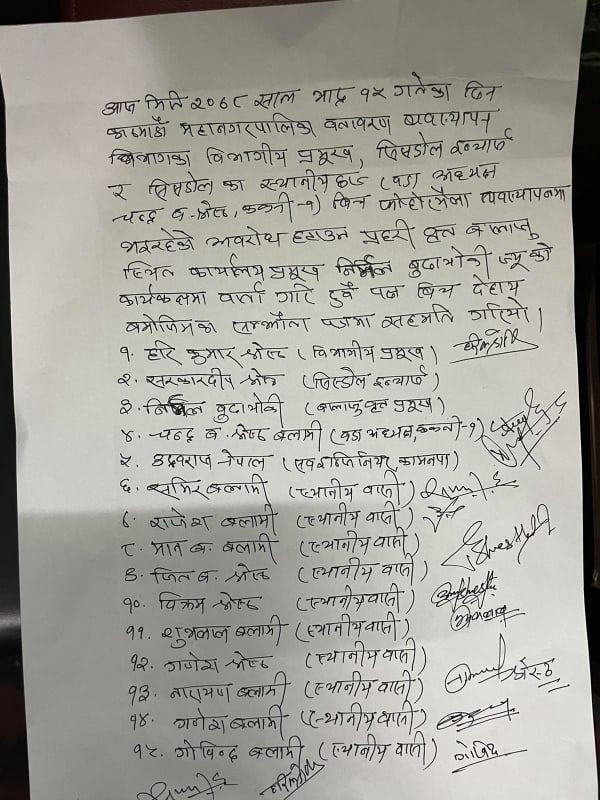 आज मिति २०७८ साल भाद्र १५ गतेका दिन
काठमाडौं महानगरपालिका वतावरण व्यवस्थापन
बिभागका विभागीय प्रमुख, सिसडोल इन्चार्ज
र सिसडोल का स्थानीय (वडा अध्यक्ष
चन्द्र ब. श्रेष्ठ, ककनी-१) बिच फोहोरमैला व्यवस्थापनमा
भइरहेको अवरोध हटाउन प्रहरी वृत्त बालाजु
स्थित कार्यालय प्रमुख बुढाथोकी ज्यू को
कार्यकक्षमा वार्ता गरि दुवै पक्ष बिच देहाय
बमोजिमका सम्झौता पत्रमा सहमति गरियो।
१. हरि कुमार श्रेष्ठ (विभागीय प्रमुख)
२. श्रेष्ठ (सिसडोल इन्चार्ज)
३. बुढाथोकी (बालाजु वृत्त प्रमुख)
४. चन्द्र ब. श्रेष्ठ बलामी (वडा अध्यक्ष, ककनी-१)
५. उद्दवराज नेपाल (सव इन्जिनियर, कामनपा)
६. समिर बलामी (स्थानीय वासी)
७. राजेश बलामी (स्थानीय वासी)
८. मान ब. बलामी (स्थानीय वासी)
९. जित ब. श्रेष्ठ (स्थानीय वासी)
१०. विक्रम श्रेष्ठ (स्थानीय वासी)
११. शुभलाल बलामी (स्थानीय वासी)
१२. गणेश श्रेष्ठ (स्थानीय वासी)
१३. नारायण बलामी (स्थानीय वासी) श्रेष्ठ
१४. गनेश बलामी (स्थानीय वासी)
१५. गोविन्द बलामी (स्थानीय वासी) गोविन्द